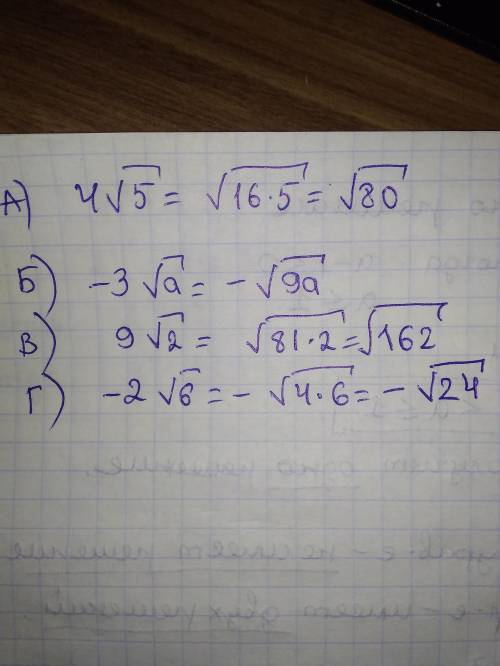 А) 4√5 = √16·5 = √80
Б) -3√a = -√9a
В) 9√2 = √81·2 = √162
Г) -2√6 = -√4·6 = -√24